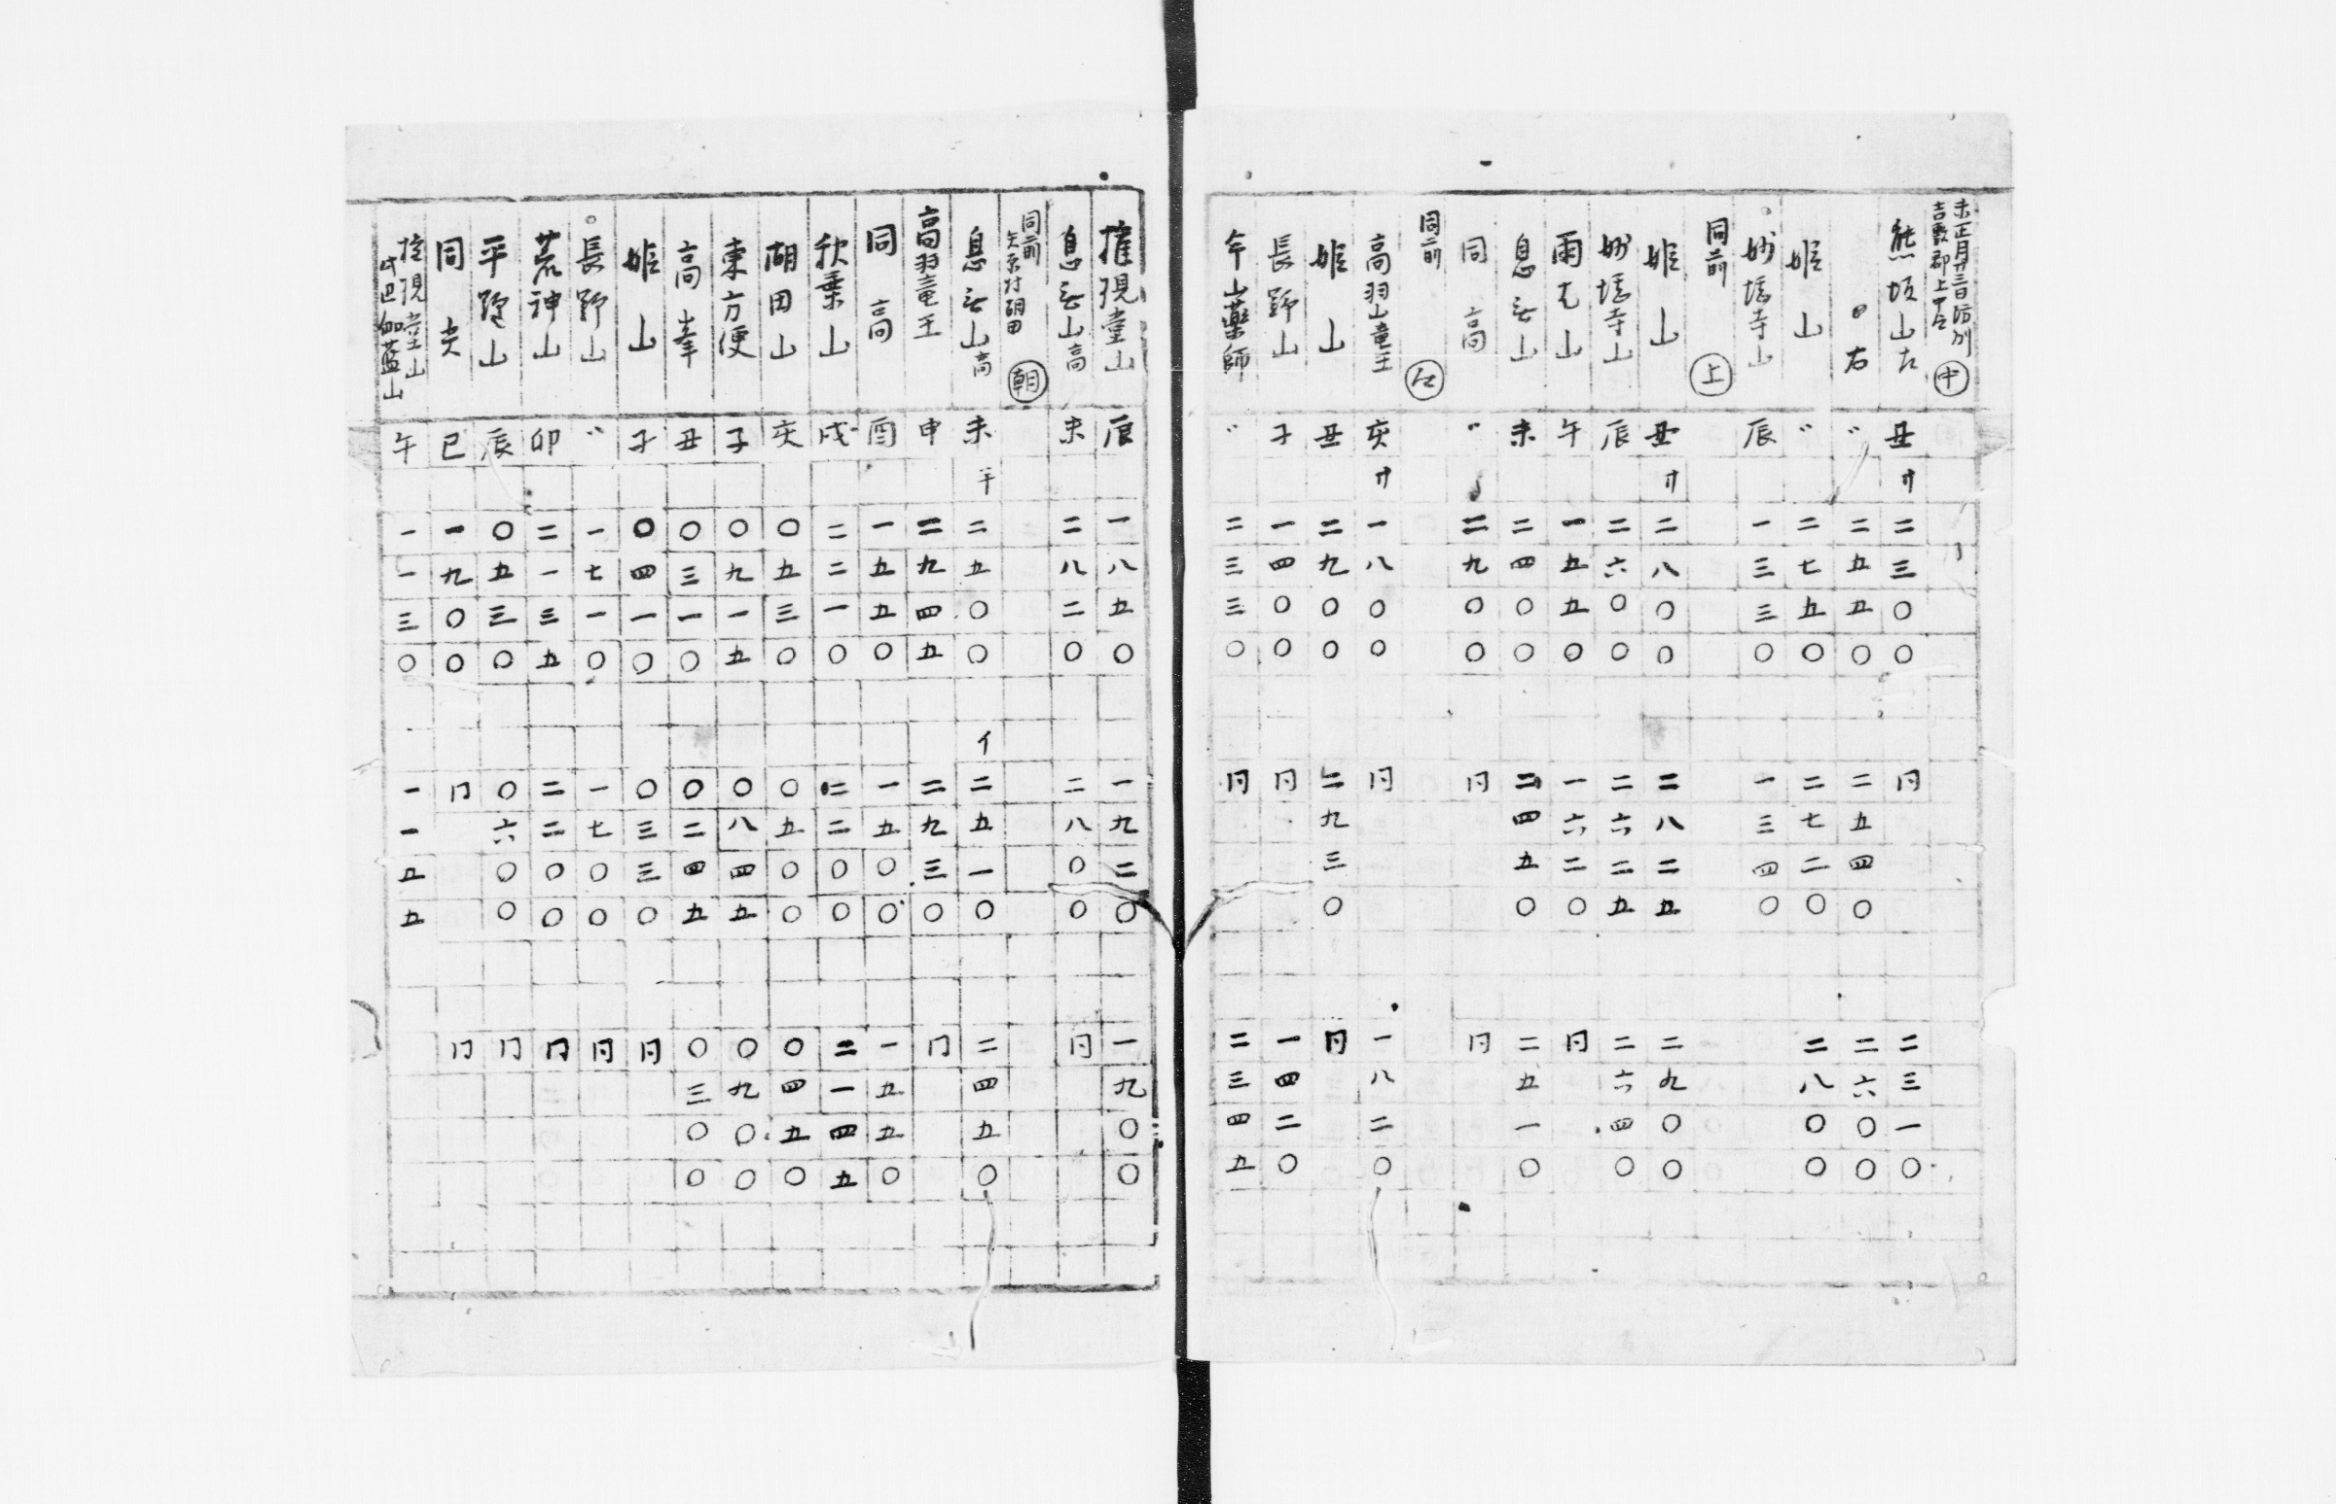 未正月廿三日防州
吉敷郡上中尺 中
熊坂山左 丑 サ 二三〇〇 同 二三一〇
〃 右 〃 二五五〇 二五四〇 二六〇〇
姫山 〃 二七五〇 二七二〇 二八〇〇
妙塔寺山 辰 一三三〇 一三四〇
同前 上
姫山 丑 サ 二八〇〇 二八二五 二九〇〇
妙塔寺山 辰 二六〇〇 二六二五 二六四〇
雨乞山 午 一五五〇 一六二〇 同
息立山 未 二四〇〇 二四五〇 二五一〇
同高 〃 二九〇〇 同 同
同前
高羽山竜王 亥 サ 一八〇〇 同 一八二〇
姫山 丑 二九〇〇 二九三〇 同
長野山 子 一四〇〇 同 一四二〇
午山薬師 〃 二三三〇 同 二三四五
権現堂山 辰 一八五〇 一九二〇 一九〇〇
息立山高 未 二八二〇 二八〇〇 同
同前
矢原村朝田 朝
息立山高 未 二五〇〇 イ 二五一〇 二四五〇
高羽竜王 申 二九四五 二九三〇 同
同高 酉 一五五〇 一五〇〇 一五五〇
秋葉山 戌 二二一〇 二二〇〇 二一四五
湖田山 亥 〇五三〇 〇五〇〇 〇四五〇
東方便 子 〇九一五 〇八四五 〇九〇〇
高峯 丑 〇三一〇 〇二四五 〇三〇〇
姫山 子 〇四一〇 〇三三〇 同
長野山 〃 一七一〇 一七〇〇 同
荒神山 卯 二一三五 二二〇〇 同
平野山 辰 〇五三〇 〇六〇〇 同
同 巳 一九〇〇 同 同
権現堂山
伽藍山 午 一一三〇 一一五五